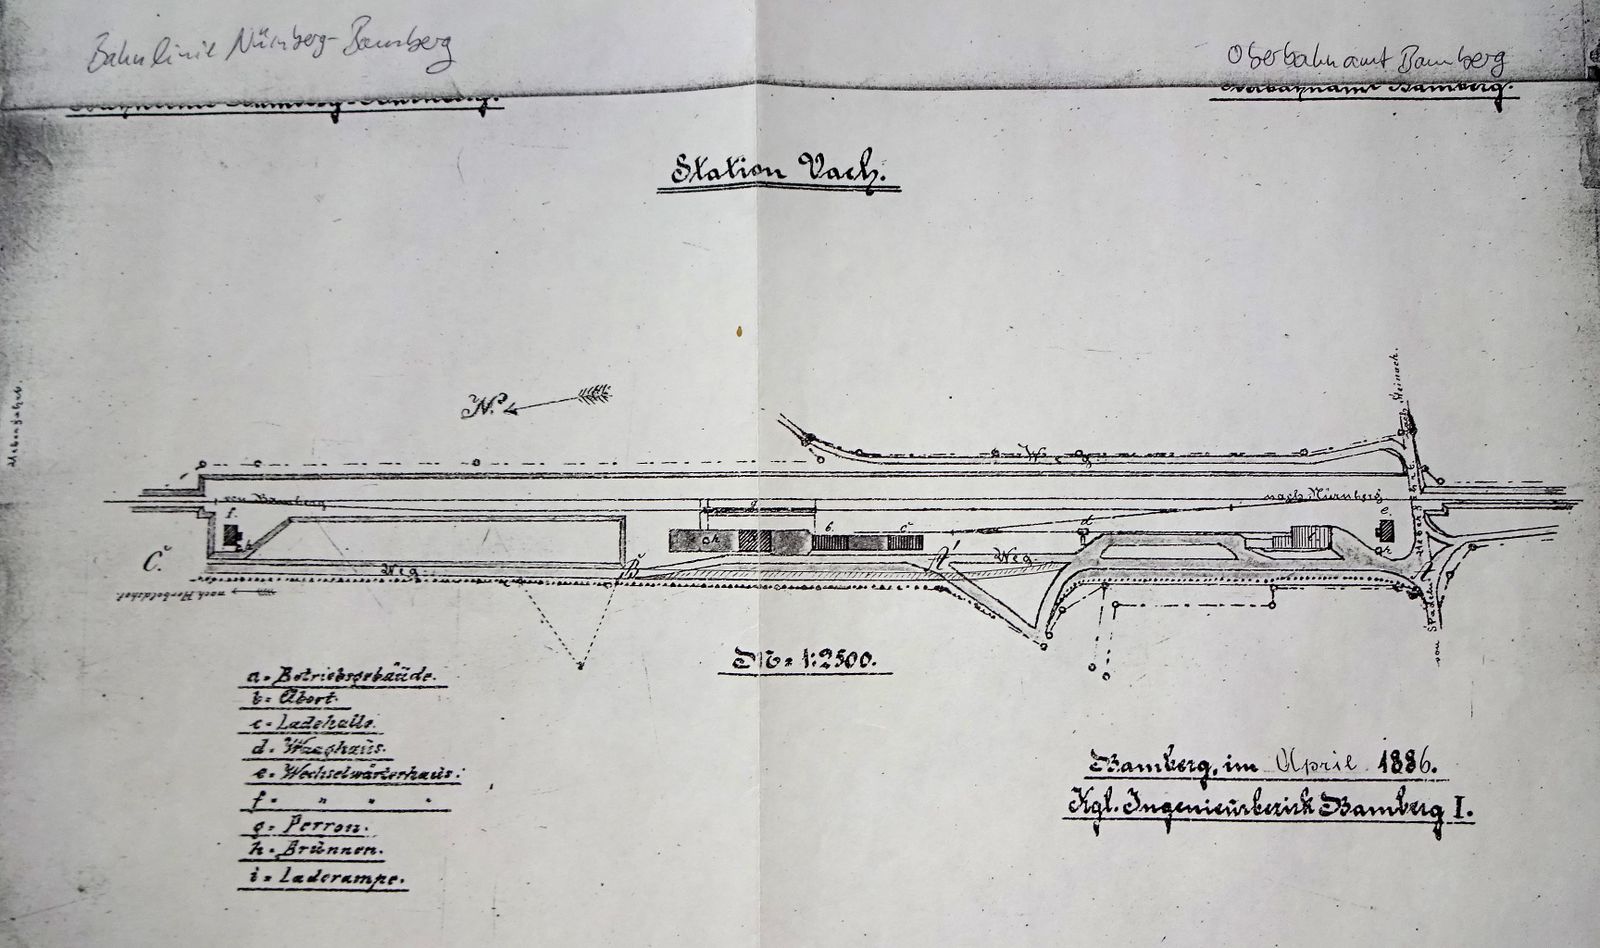 Bahnlinie Nürnberg-Bamberg
Oberbahnamt Bamberg
Oberbahnamt Bamberg.
Station Vach.
N.
nach Steinach.
W g
von Bamberg
nach Nürnberg
f.
h
g
a h
b.
c.
d
e.
C.
B
A
Weg
Weg
nach Herboldshof
von Stadeln
M = 1:2500.
a = Betriebsgebäude.
b = Abort.
c = Ladehalle.
d = Waaghaus.
e = Wechselwärterhaus.
f = " " "
g = Perron.
h = Brunnen.
i = Laderampe.
Bamberg, im April 1886.
Kgl. Ingenieurbezirk Bamberg I.